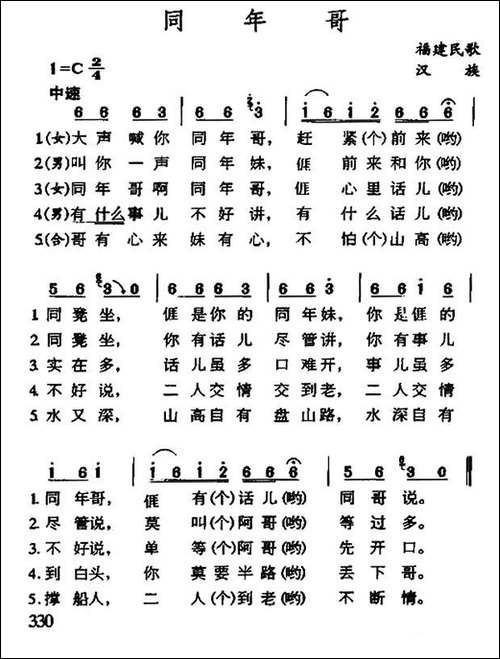 同年哥
福建民歌
汉族
1=C 2/4
中速
6 6 6 3 | 6 6 6 3 | i 6 i 2 6 6 6
1.(女)大声喊你 同年哥, 赶紧(个)前来(哟)
2.(男)叫你一声 同年妹, 𠊎前来和你(哟)
3.(女)同年哥啊 同年哥, 𠊎心里话儿(哟)
4.(男)有什么事儿 不好讲, 有什么话儿(哟)
5.(合)哥有心来 妹有心, 不怕(个)山高(哟)
5 6 3 0 | 6 6 6 3 | 6 6 6 3 | 6 6 6 i 6
1.同凳坐, 𠊎是你的 同年妹, 你是𠊎的
2.同凳坐, 你有话儿 尽管讲, 你有事儿
3.实在多, 话儿虽多 口难开, 事儿虽多
4.不好说, 二人交情 交到老, 二人交情
5.水又深, 山高自有 盘山路, 水深自有
i 6 i | i 6 i 2 6 6 6 | 5 6 3 0
1.同年哥, 𠊎有(个)话儿(哟) 同哥说。
2.尽管说, 莫叫(个)阿哥(哟) 等过多。
3.不好说, 单等(个)阿哥(哟) 先开口。
4.到白头, 你莫要半路(哟) 丢下哥。
5.撑船人, 二人(个)到老(哟) 不断情。
330